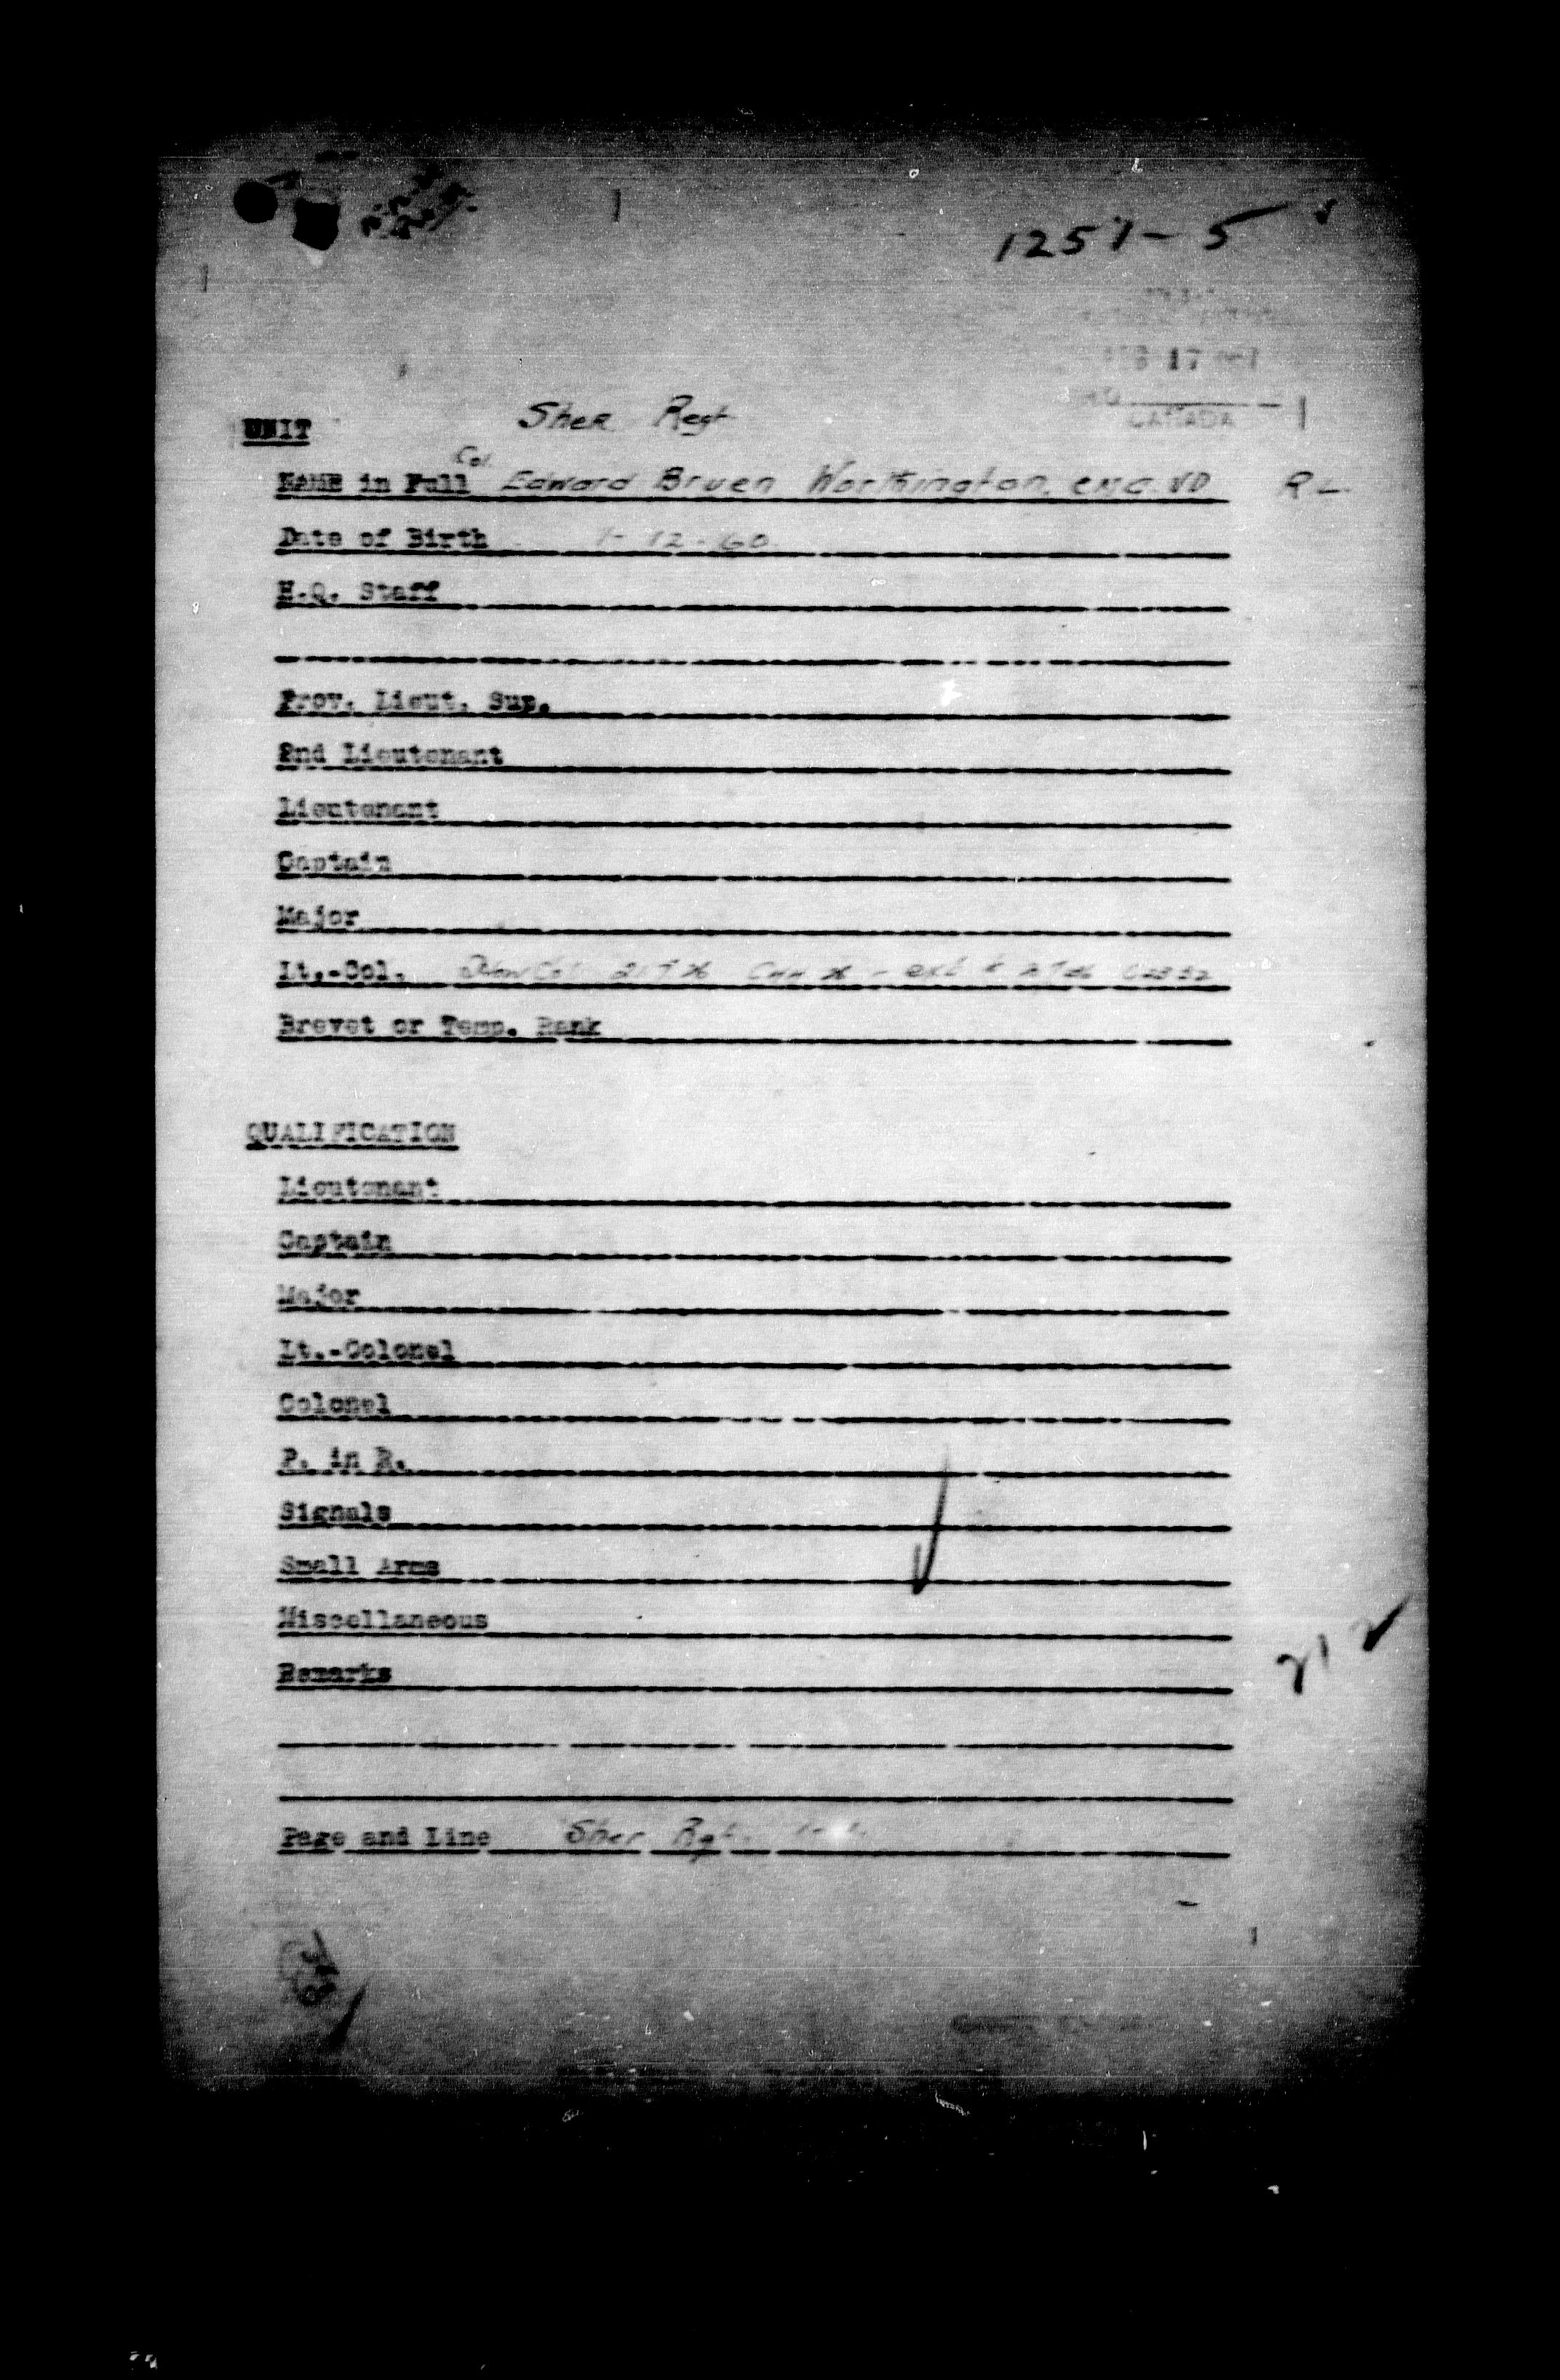 1257-5
17
CANADA
UNIT Sher Regt
Col.
NAME in Full Edward Bruen Worthington, CMG. VD R L
Date of Birth 1-12-60
H.Q. Staff
Prov. Lieut. Sup.
2nd Lieutenant
Lieutenant
Captain
Major
Lt.-Col. Hon Col
Brevet or Temp. Rank
QUALIFICATION
Lieutenant
Captain
Major
Lt.-Colonel
Colonel
P. in R.
Signals
Small Arms
Miscellaneous
Remarks
Page and Line Sher Rgt.